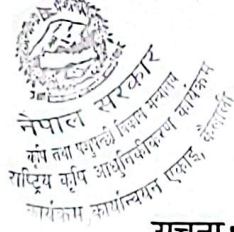 नेपाल सरकार
कृषि तथा पशुपन्छी विकास मन्त्रालय
राष्ट्रिय कृषि आधुनिकीकरण कार्यक्रम
कार्यक्रम कार्यान्वयन एकाई, कैलाली